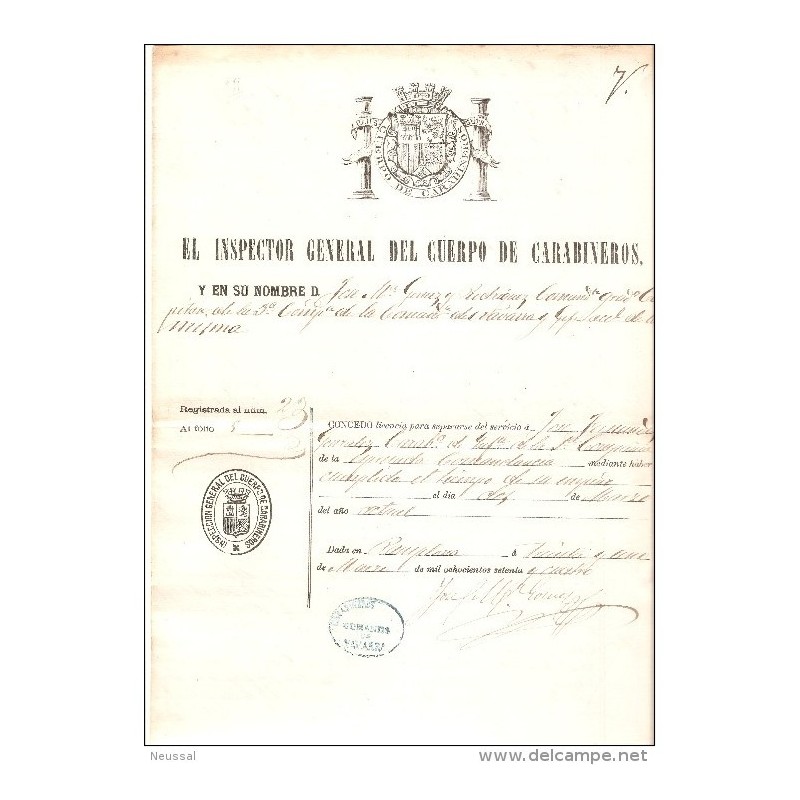 7.
CUERPO DE CARABINEROS
EL INSPECTOR GENERAL DEL CUERPO DE CARABINEROS,
Y EN SU NOMBRE D. José Mª Gomez y Comandte gradº
de la 3ª Compª de la Comandª de Navarra y Gefe accl de la
misma
Registrada al núm. 23
Al folio 8
CONCEDO licencia para separarse del servicio á José
Gonzalez Carabº de Infª de la 3ª Compañia
de la Comandancia mediante haber
cumplido el tiempo de su empeño
el dia de Marzo
del año actual
INSPECCION GENERAL DEL CUERPO DE CARABINEROS
Dada en Pamplona á Veinte y uno
de Marzo de mil ochocientos setenta y cuatro
José Mª Gomez
CARABINEROS
COMANDª
DE
NAVARRA
Neussal
delcampe.net